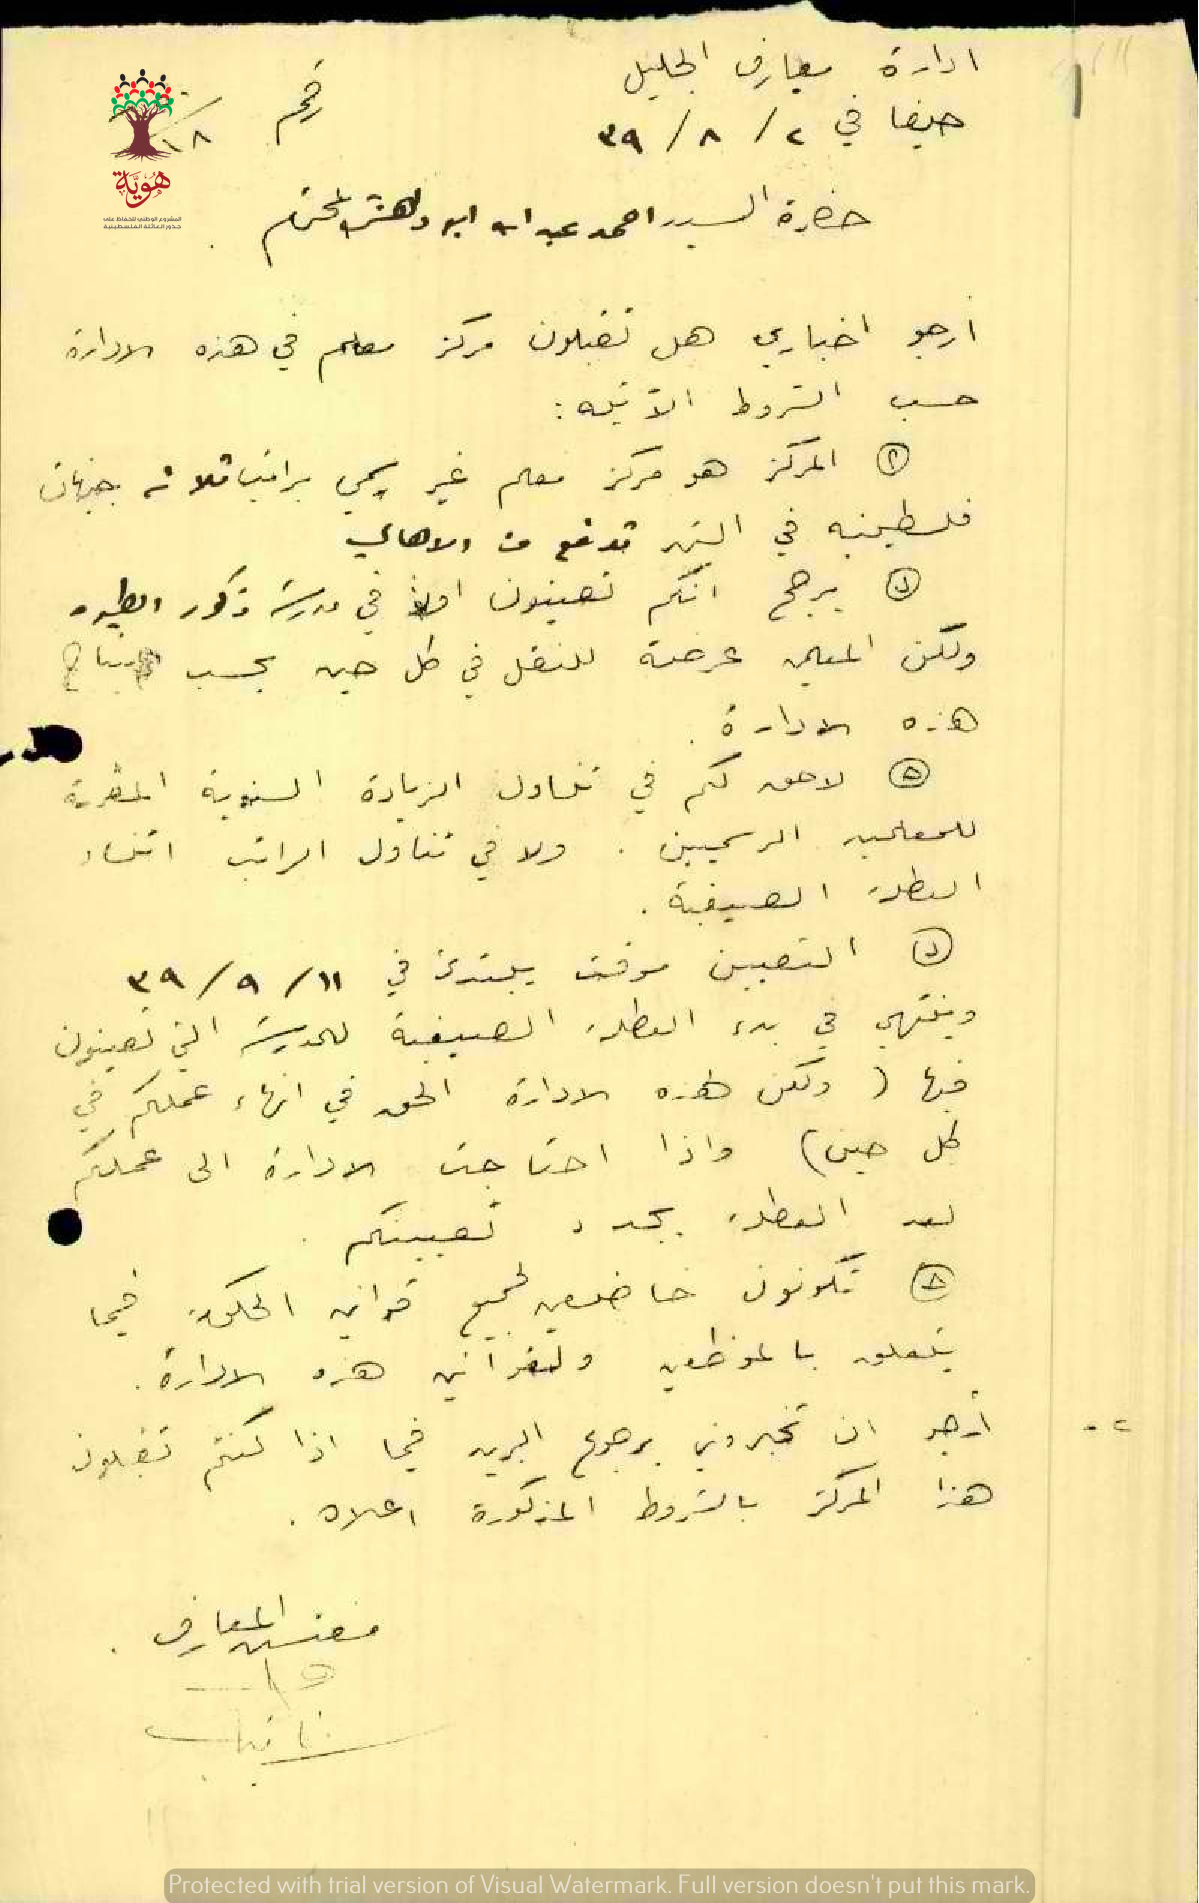 ادارة معارف الجليل
حيفا في ٢ / ٨ / ٣٩
رقم ١٨/
هوية
المشروع الوطني للحفاظ على
جذور العائلة الفلسطينية
حضرة السيد احمد عبد الله ابو دلهش المحترم
أرجو اخباري هل تقبلون مركز معلم في هذه الادارة
حسب الشروط الآتيه :
المركز هو مركز معلم غير رسمي براتب ثلاثة جنيهات
فلسطينيه في الشهر تدفع من الاهالي
ب يرجح انكم تعينون اولا في مدرسة ذكور الطيره
ولكن المعلمين عرضة للنقل في كل حين بحسب
هذه الادارة .
لا حق لكم في تناول الزيادة السنوية المقررة
للمعلمين الرسميين . ولا في تناول الراتب اثناء
العطلة الصيفية .
د التعيين موقت يبتدئ في ١١ / ٩ / ٣٩
وينتهي في بدء العطلة الصيفية للمدرسة التي تعينون
فيها ( ولكن لهذه الادارة الحق في انهاء عملكم في
كل حين ) واذا احتاجت الادارة الى عملكم
بعد العطلة يجدد تعيينكم .
ه تكونون خاضعين لجميع قوانين الحكومة فيما
يتعلق بالموظفين ولقوانين هذه الادارة .
٢ - أرجو ان تخبروني برجوع البريد فيما اذا كنتم تقبلون
هذا المركز بالشروط المذكورة اعلاه .
مفتش المعارف .
Protected with trial version of Visual Watermark. Full version doesn't put this mark.